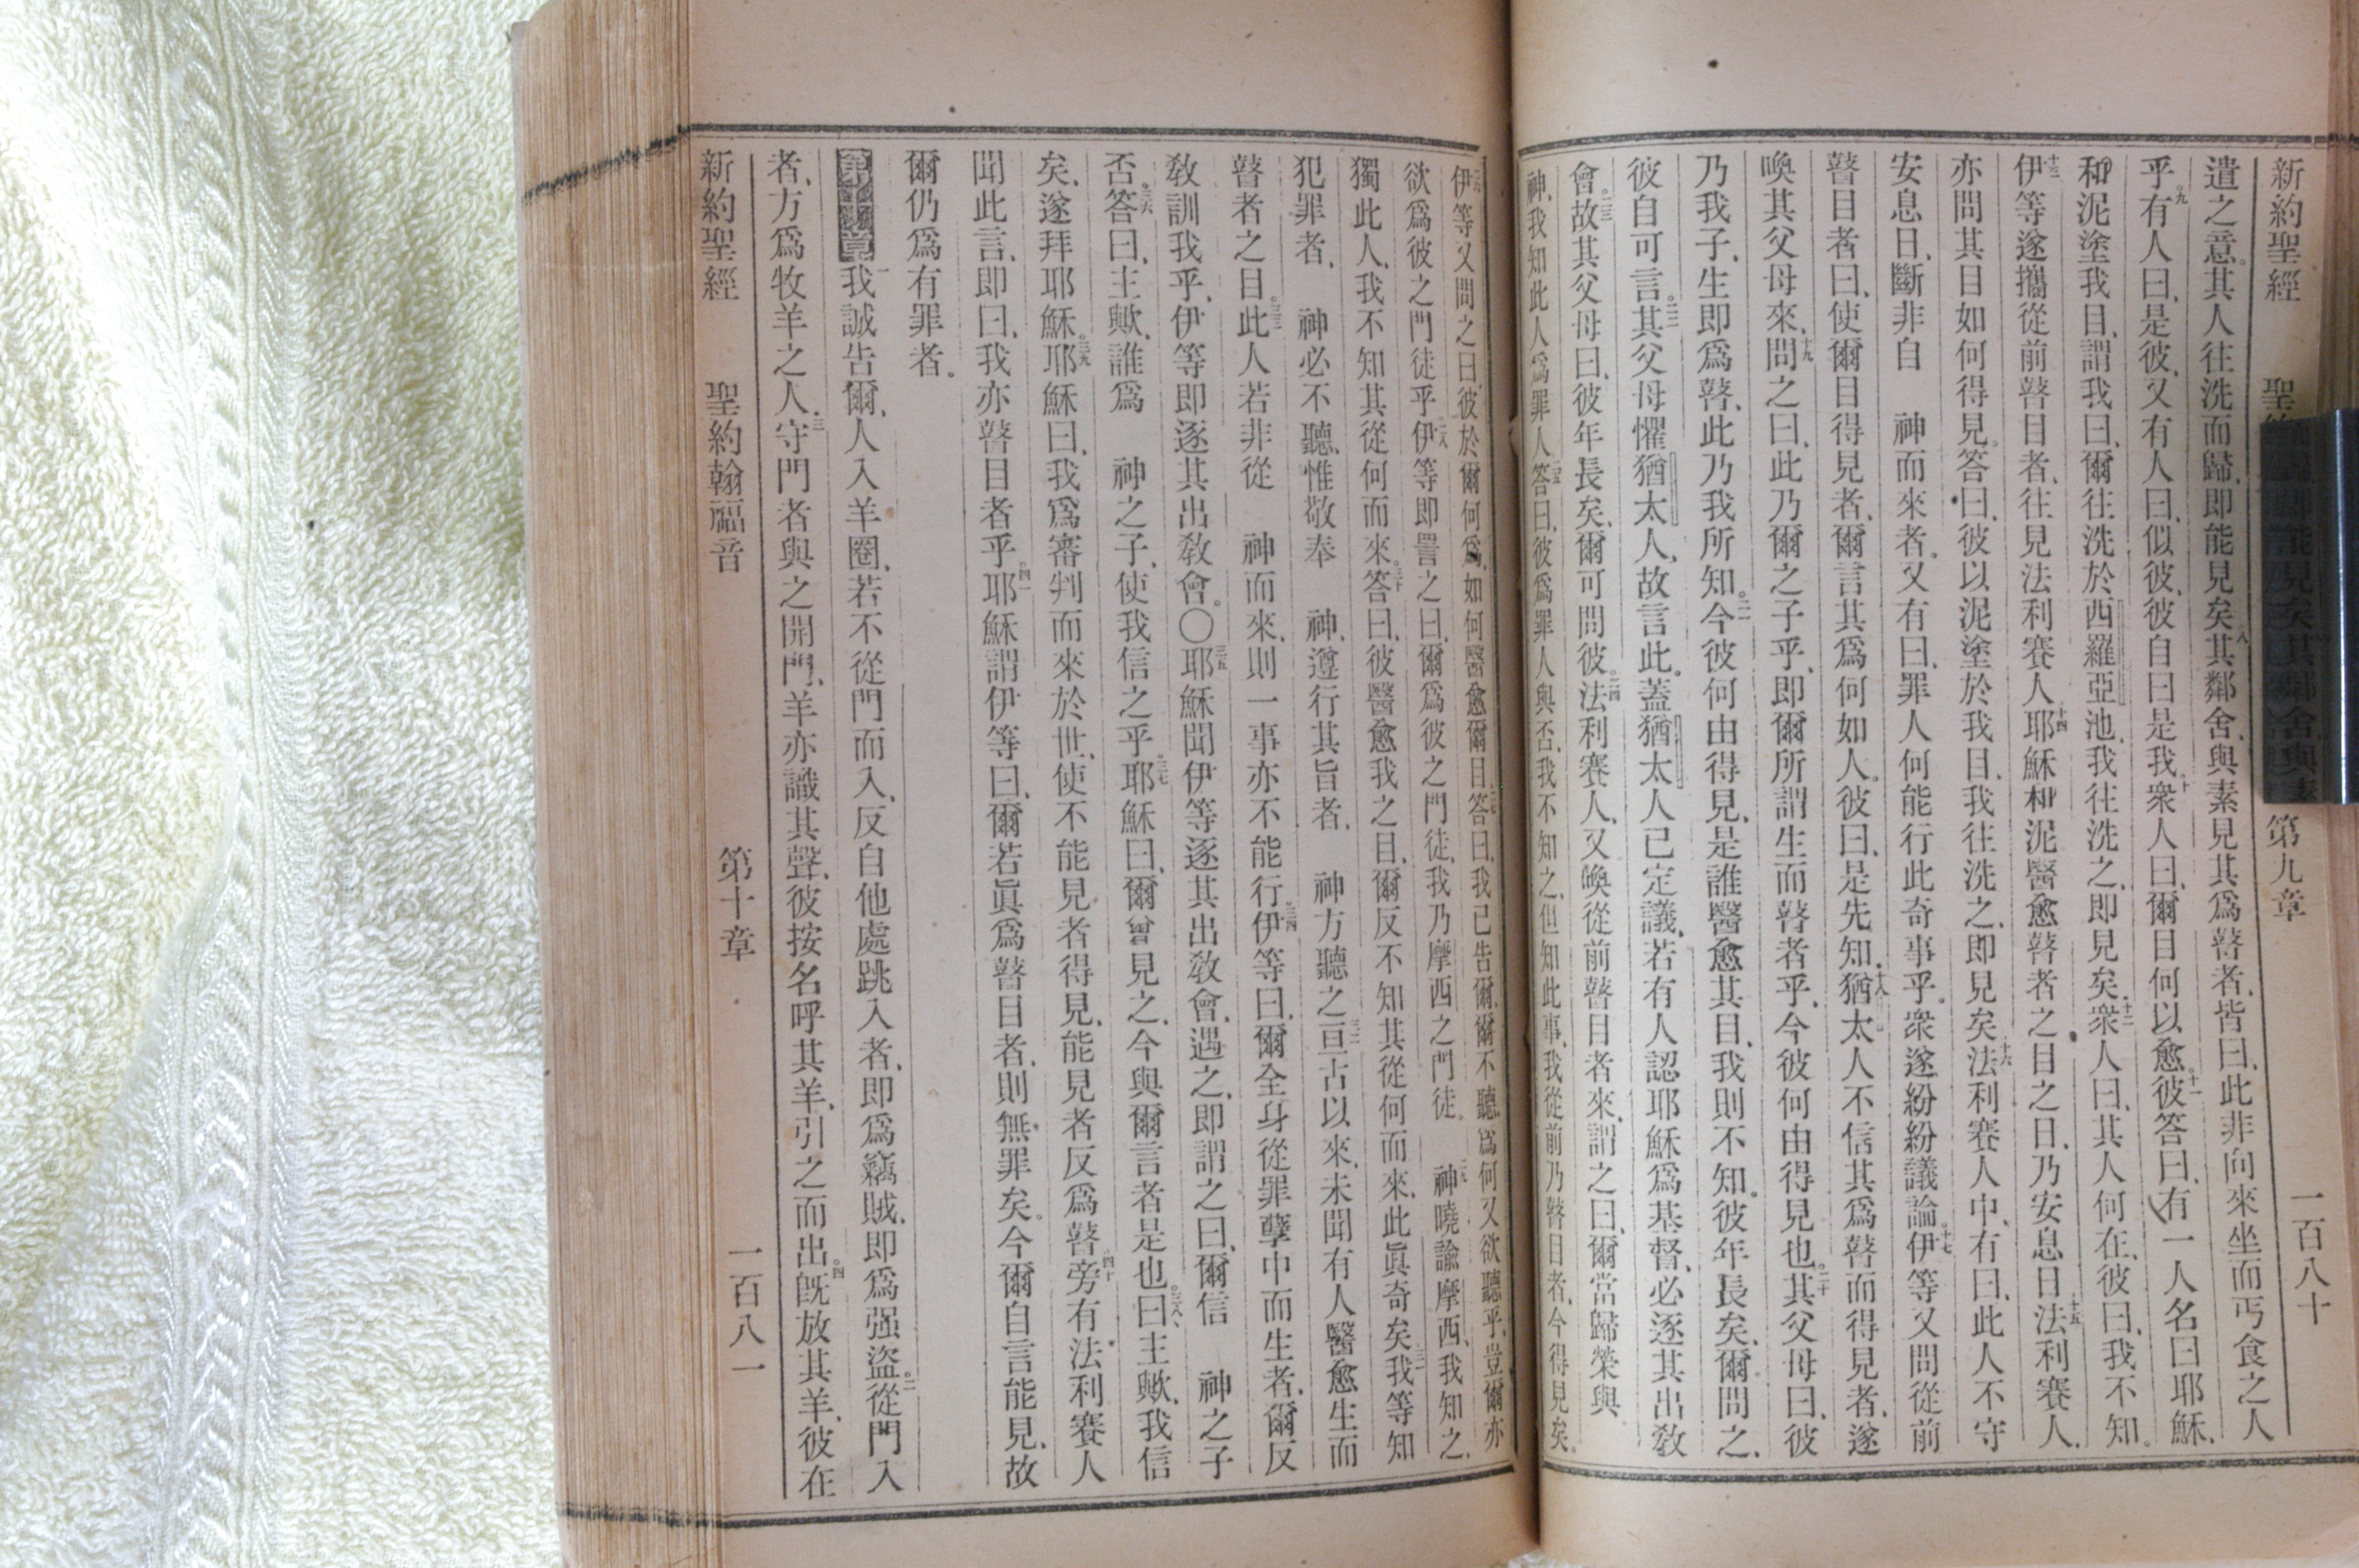 新約聖經 聖 第九章 一百八十
遣之意。其人往洗而歸、即能見矣。八其鄰舍、與素見其爲瞽者、皆曰、此非向來坐而丐食之人
乎。九有人曰、是彼、又有人曰、似彼、彼自曰是我。十衆人曰、爾目何以愈。十一彼答曰、有一人名曰耶穌、
和泥塗我目、謂我曰、爾往洗於西羅亞池、我往洗之、即見矣。十二衆人曰、其人何在、彼曰、我不知。
十三伊等遂攜從前瞽目者、往見法利賽人。十四耶穌和泥醫愈瞽者之目之日、乃安息日。十五法利賽人、
亦問其目如何得見。答曰、彼以泥塗於我目、我往洗之、即見矣。十六法利賽人中、有曰、此人不守
安息日、斷非自 神而來者。又有曰、罪人何能行此奇事乎。衆遂紛紛議論。十七伊等又問從前
瞽目者曰、使爾目得見者、爾言其爲何如人。彼曰、是先知。十八猶太人不信其爲瞽而得見者、遂
喚其父母來、十九問之曰、此乃爾之子乎、即爾所謂生而瞽者乎、今彼何由得見也。二十其父母曰、彼
乃我子、生即爲瞽、此乃我所知。二一今彼何由得見、是誰醫愈其目、我則不知。彼年長矣、爾問之、
彼自可言。二二其父母懼猶太人、故言此。蓋猶太人已定議、若有人認耶穌爲基督、必逐其出敎
會。二三故其父母曰、彼年長矣、爾可問彼。二四法利賽人、又喚從前瞽目者來、謂之曰、爾當歸榮與
神、我知此人爲罪人。二五答曰、彼爲罪人與否、我不知之、但知此事、我從前乃瞽目者、今得見矣。
二六伊等又問之曰、彼於爾何爲、如何醫愈爾目。二七答曰、我已告爾、爾不聽、爲何又欲聽乎、豈爾亦
欲爲彼之門徒乎。二八伊等即詈之曰、爾爲彼之門徒、我乃摩西之門徒。二九 神曉諭摩西、我知之、
獨此人、我不知其從何而來。三十答曰、彼醫愈我之目、爾反不知其從何而來、此眞奇矣。三一我等知
犯罪者、 神必不聽、惟敬奉 神、遵行其旨者、 神方聽之。三二亘古以來、未聞有人醫愈生而
瞽者之目。三三此人若非從 神而來、則一事亦不能行。三四伊等曰、爾全身從罪孽中而生者、爾反
敎訓我乎、伊等即逐其出敎會。〇三五耶穌聞伊等逐其出敎會、遇之、即謂之曰、爾信 神之子
否。三六答曰、主歟、誰爲 神之子、使我信之乎。三七耶穌曰、爾曾見之、今與爾言者是也。三八曰、主歟、我信
矣、遂拜耶穌。三九耶穌曰、我爲審判而來於世、使不能見者得見、能見者反爲瞽。四十旁有法利賽人
聞此言、即曰、我亦瞽目者乎。四一耶穌謂伊等曰、爾若眞爲瞽目者、則無罪矣。今爾自言能見、故
爾仍爲有罪者。
第十章 一我誠告爾、人入羊圈、若不從門而入、反自他處跳入者、即爲竊賊、即爲强盜。二從門入
者、方爲牧羊之人。三守門者與之開門、羊亦識其聲、彼按名呼其羊、引之而出。四旣放其羊、彼在
新約聖經 聖約翰福音 第十章 一百八一